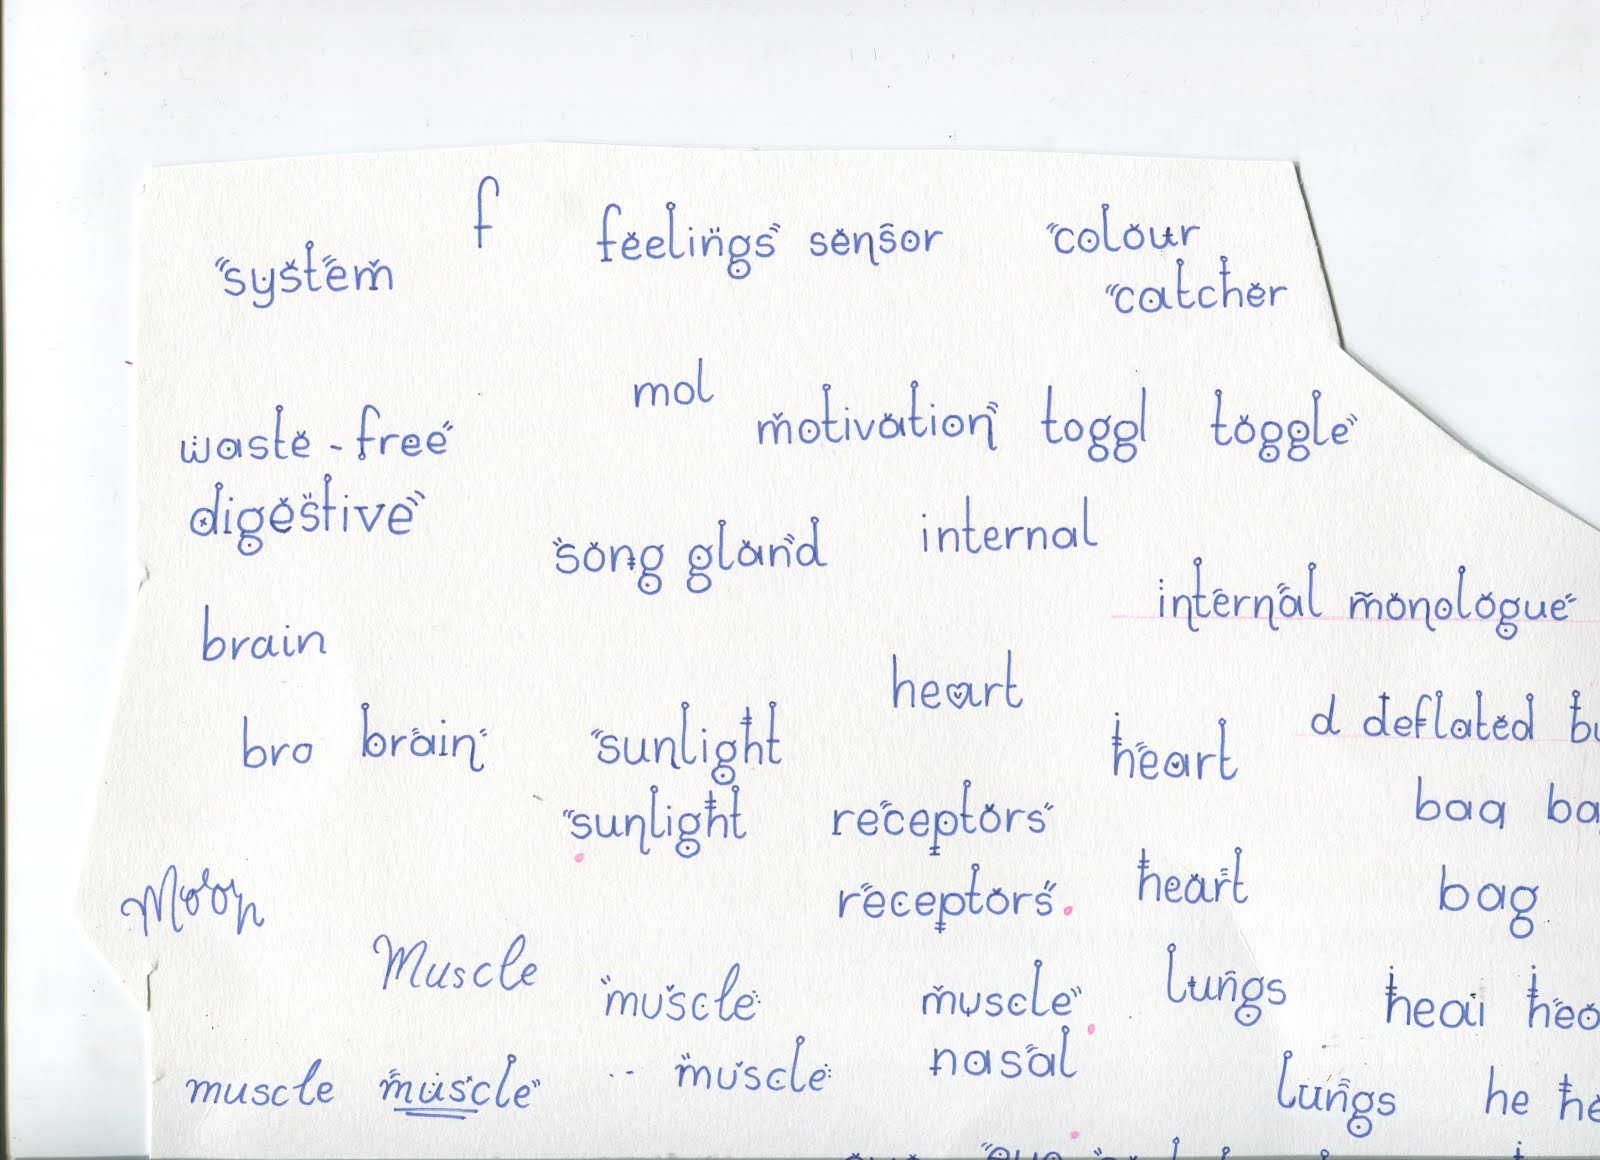 system f feelings sensor colour
catcher
mol
waste - free motivation toggl toggle
digestive
song gland internal
internal monologue
brain
heart
bro brain sunlight heart d deflated
sunlight receptors bag
receptors heart bag
Moon
Muscle muscle muscle lungs heai
muscle muscle muscle nasal
lungs he